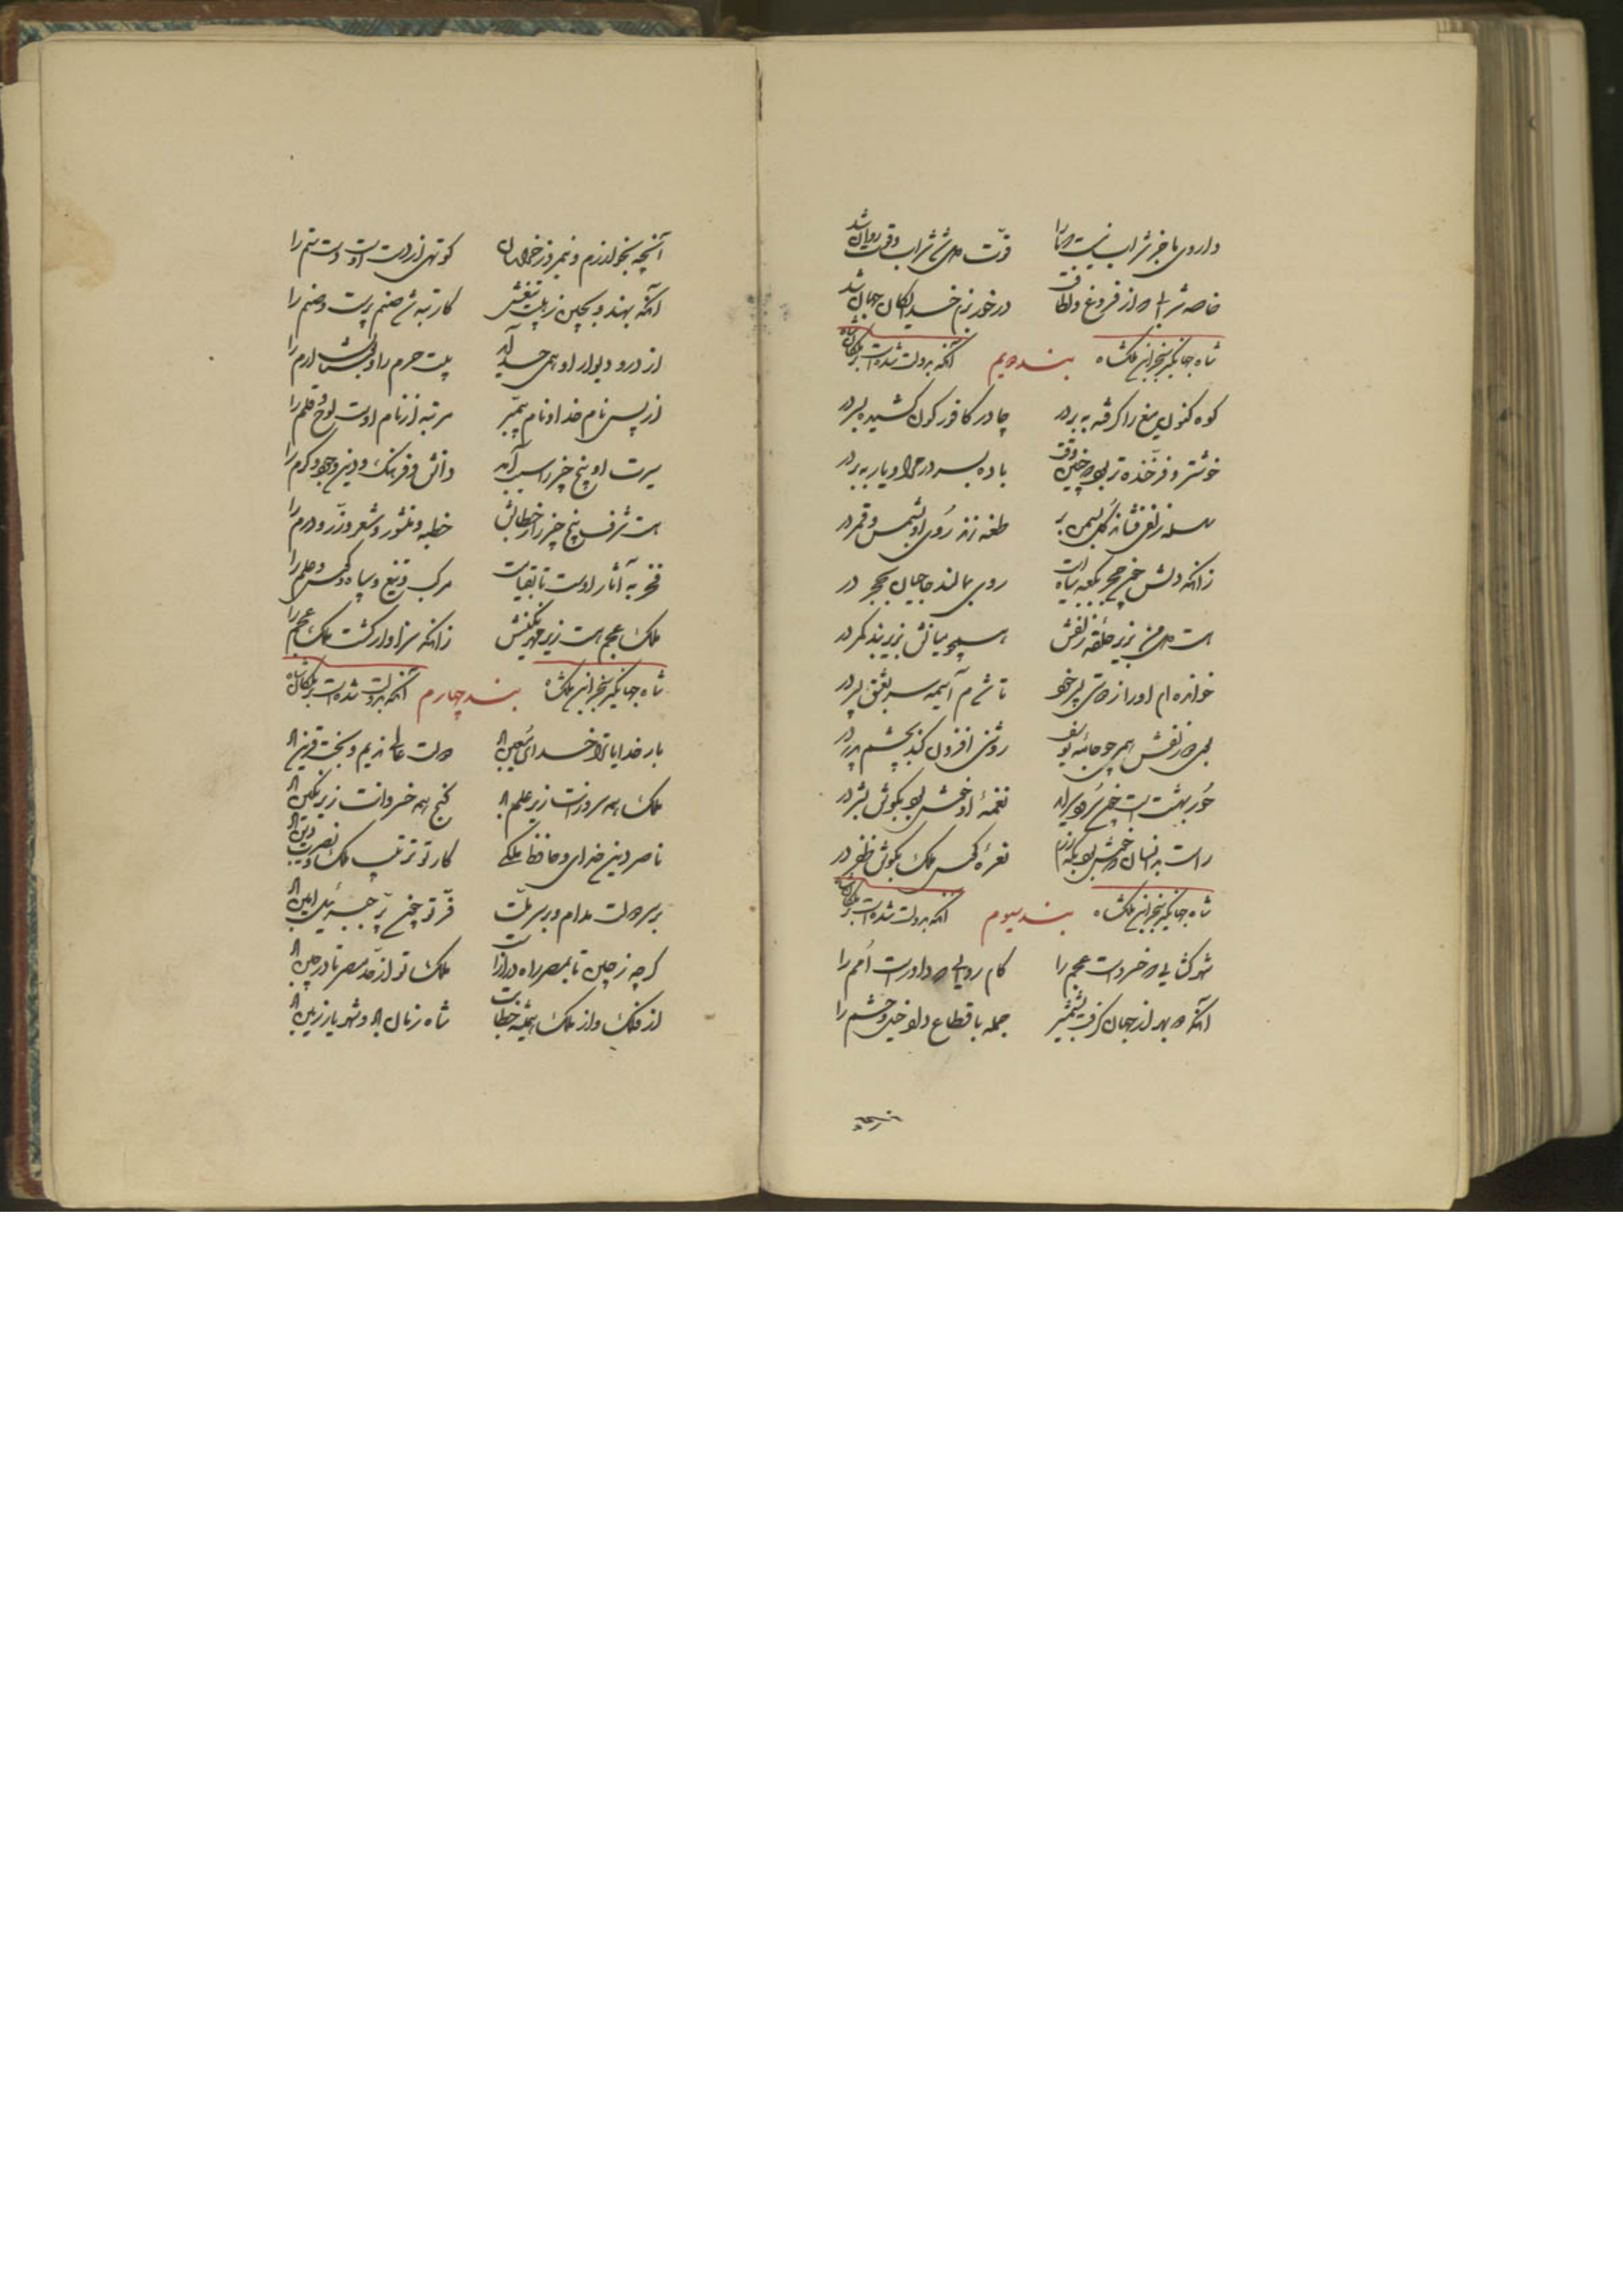 داروی ما جز شراب نیست که ما را قوت دل شد شراب و قوت روان شد
خاصه شرابی که از فروغ و لطافت در خور بزم خدایگان جهان شد
شاه جهانگیر سنجر ابن ملکشاه بند دویم آنکه بدولت شده است
کوه کنون میغ را گرفته ببر در چادر کافورگون کشیده بسر در
خوشتر و فرخنده‌تر بود بچنین وقت باده بسر در مرا و یار ببر در
سلسله زلفی فشانده گل بسمن بر طعنه زند روی او بشمس و قمر در
زانکه دلش چون حجر بکعبه سیاه است روی بمالند حاجیان بحجر در
هست دل من بزیر حلقه زلفش همچو میانش بزیر بند کمر در
خوانده‌ام او را ز پری خو تا شدم آسیمه سر بعشق پسر در
بوی زلفش همی چو جامه یوسف روشنی افزون کند بچشم پدر در
حور بهشت است چون سرود سراید نغمه او خوش بود بگوش بشر در
راست بدانسان که خوش بود بگه رزم نعره کوس ملک بگوش ظفر در
شاه جهانگیر سنجر ابن ملکشاه بند سیوم آنکه بدولت شده است
شهرگشایی که خسرو است عجم را کام روایی که داور است امم را
آنکه که بهر از جهان گرفت بشمشیر جمله باقطاع داد خیل و حشم را
آنچه بخوارزم و نیمروز خراسان کوتهی از دست اوست دست ستم را
آنکه بهند و بچین ز هیبت تیغش کار تبه شد صنم پرست و صنم را
از در و دیوار او همی حسد آید بیت حرم را و گلستان ارم را
از پس نام خدا و نام پیمبر مرتبه از نام اوست لوح و قلم را
سیرت او پنج چیز را سبب آمد دانش و فرهنگ و دین و جود و کرم را
هست شرف پنج چیز را ز خطابش خطبه و منشور و شعر و زر و درم را
فخر به آثار اوست تا بقیامت مرکب و تیغ و سپاه و کوس و علم را
ملک عجم هست زیر مهر نگینش زانکه سزاوار گشت ملک عجم را
شاه جهانگیر سنجر ابن ملکشاه بند چهارم آنکه بدولت شده است
بار خدایا ترا خدای معین باد دولت عالی ندیم و بخت قرین باد
ملک همه سروران زیر علم باد گنج همه خسروانت زیر نگین باد
ناصر دین خدای و حافظ ملکی کار تو ترتیب ملک و نصرت دین باد
بر سر دولت مدام و بر سر ملت فر تو چون پر جبرئیل امین باد
گرچه ز چین تا بمصر راه دراز است ملک تو از حد مصر تا در چین باد
از فلک و از ملک همیشه خطابت شاه زمان باد و شهریار زمین باد